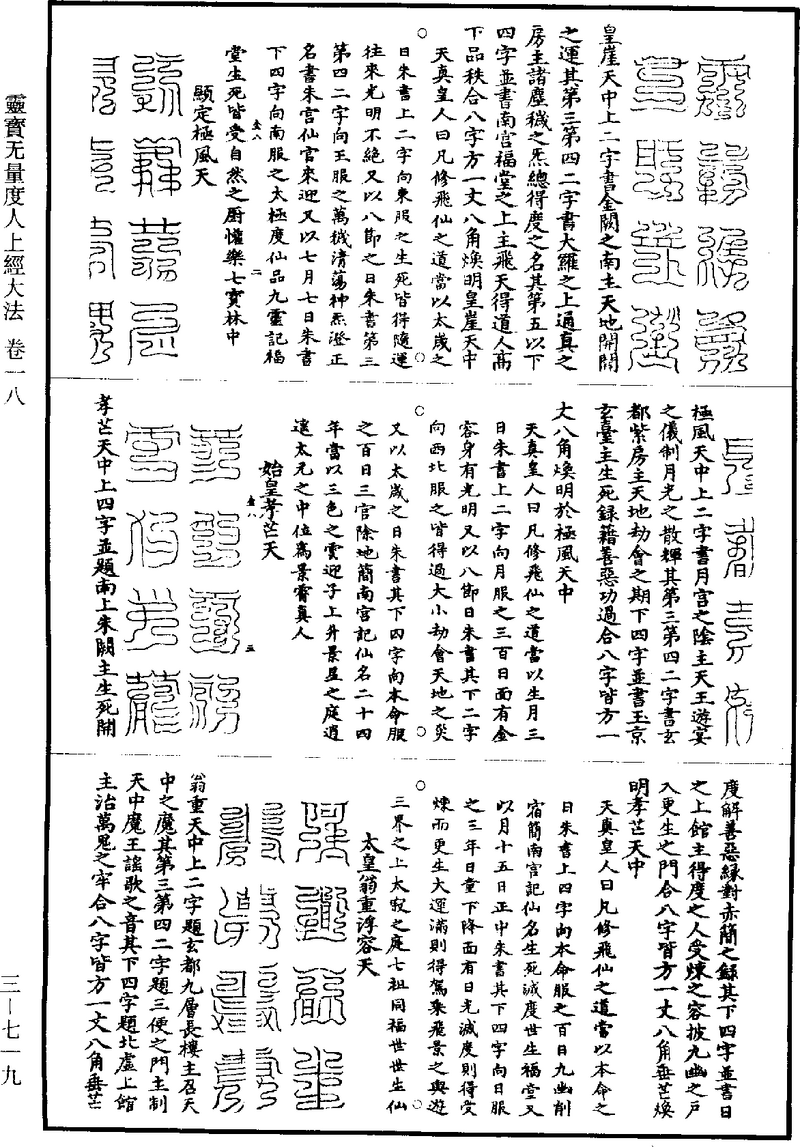 靈寶无量度人上經大法 卷一八
三—七一九
皇崖天中上二字書金闕之南主天地開闢
之運其第三第四二字書大羅之上通真之
房主諸塵穢之炁總得度之名其第五以下
四字並書南宮福堂之上主飛天得道人高
下品秩合八字方一丈八角煥明皇崖天中
天真皇人曰凡修飛仙之道當以太歲之
日朱書上二字向東服之生死皆得隨運
往來光明不絕又以八節之日朱書第三
第四二字向王服之萬穢清蕩神炁澄正
名書朱宮仙官來迎又以七月七日朱書
下四字向南服之太極度仙品九靈記福
堂生死皆受自然之廚懽樂七寶林中
顯定極風天
極風天中上二字書月宮之陰主天王遊宴
之儀制月光之散輝其第三第四二字書玄
都紫房主天地劫會之期下四字並書玉京
玄臺主生死錄籍善惡功過合八字皆方一
丈八角煥明於極風天中
天真皇人曰凡修飛仙之道當以生月三
日朱書上二字向月服之三百日面有金
容身有光明又以八節日朱書其下二字
向西北服之皆得過大小劫會天地之災
又以太歲之日朱書其下四字向本命服
之百日三官除地簡南宮記仙名二十四
年當以三色之雲迎子上升景星之庭逍
遙太元之中位為景霄真人
始皇孝芒天
孝芒天中上四字並題南上朱闕主生死開
度解善惡緣對赤簡之錄其下四字並書日
之上館主得度之人受煉之容披九幽之戶
入更生之門合八字皆方一丈八角垂芒煥
明孝芒天中
天真皇人曰凡修飛仙之道當以本命之
日朱書上四字向本命服之百日九幽削
宿簡南宮記仙名生死滅度世生福堂又
以月十五日正中朱書其下四字向日服
之三年日童下降面有日光滅度則得受
煉而更生大運滿則得駕乘飛景之輿遊
三界之上太寂之庭七祖同福世世生仙
太皇翁重浮容天
翁重天中上二字題玄都九層長樓主召天
中之魔其第三第四二字題三便之門主制
天中魔王謠歌之音其下四字題北虛上館
主治萬鬼之牢合八字皆方一丈八角垂芒